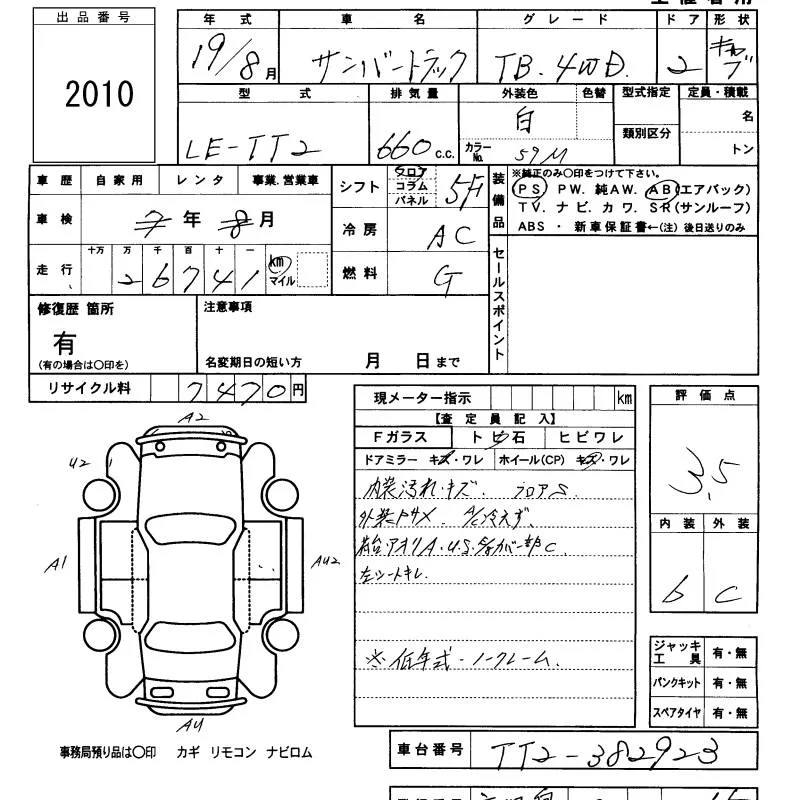 出品番号
2010
年式 車名 グレード ドア 形状
19/8月 サンバートラック TB. 4WD. 2 キャブ
型式 排気量 外装色 色替 型式指定 定員・積載
LE-TT2 660 c.c. 白 類別区分 名
カラーNo. 59M トン
車歴 自家用 レンタ 事業.営業車
シフト フロア コラム パネル 5F
装備品
※純正のみ〇印をつけて下さい。
PS PW. 純AW. AB(エアバック)
TV. ナビ. カワ. SR(サンルーフ)
ABS ・ 新車保証書←(注) 後日送りのみ
車検 7年 8月
冷房 AC
走行 十万 万 千 百 十 一
26741 km マイル
燃料 G
セールスポイント
修復歴 箇所
有
(有の場合は〇印を)
注意事項
名変期日の短い方 月 日まで
リサイクル料 7470円
現メーター指示 km
【査定員記入】
Fガラス トビ石 ヒビワレ
ドアミラー キズ・ワレ ホイール(CP) キズ・ワレ
内装汚れ・キズ. フロアS
外装ドサメ. A/C冷えず.
荷台アオリA・U.S.サガバ一部C.
左シートキレ.
※低年式・ノークレーム.
評価点
3.5
内装 外装
b C
ジャッキ 工具 有・無
パンクキット 有・無
スペアタイヤ 有・無
A2
U2
A1
AU2
AU
事務局預り品は〇印 カギ リモコン ナビロム
車台番号 TT2-382923